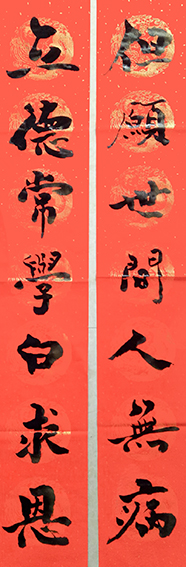 但願世間人無病
立德常學白求恩